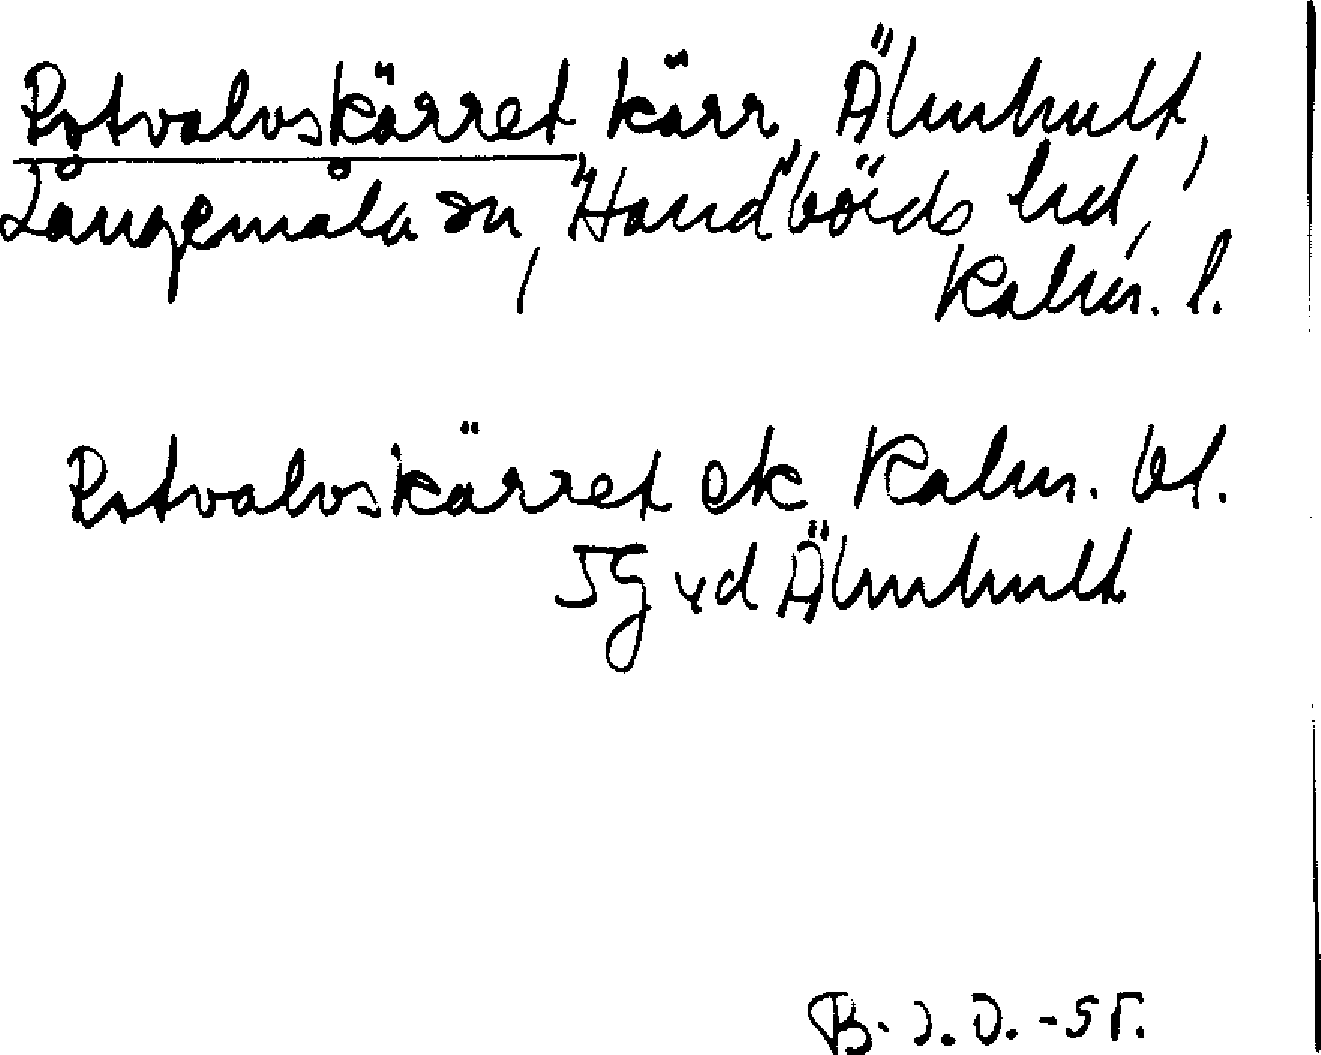 Rotvalvskärret kärr, Älmhult,
Långemåla sn, Handbörds hd,
Kalm. l.
Rotvalvskärret ek Kalm. bl.
5G vd Älmhult